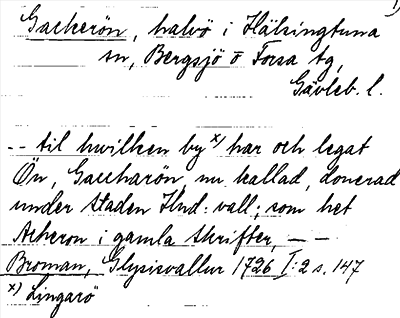 Gackerön, halvö i Hälsingtuna
sn, Bergsjö o Forsa tg,
Gävleb. l.
-- til hwilken by x) har och legat
Ön, Gaccharön, nu kallad, donerad
under staden Hud: vall; som het
Ackeron i gamla skrifter, — —
Broman, Glysisvallur 1726 I:2 s. 147
x) Lingarö